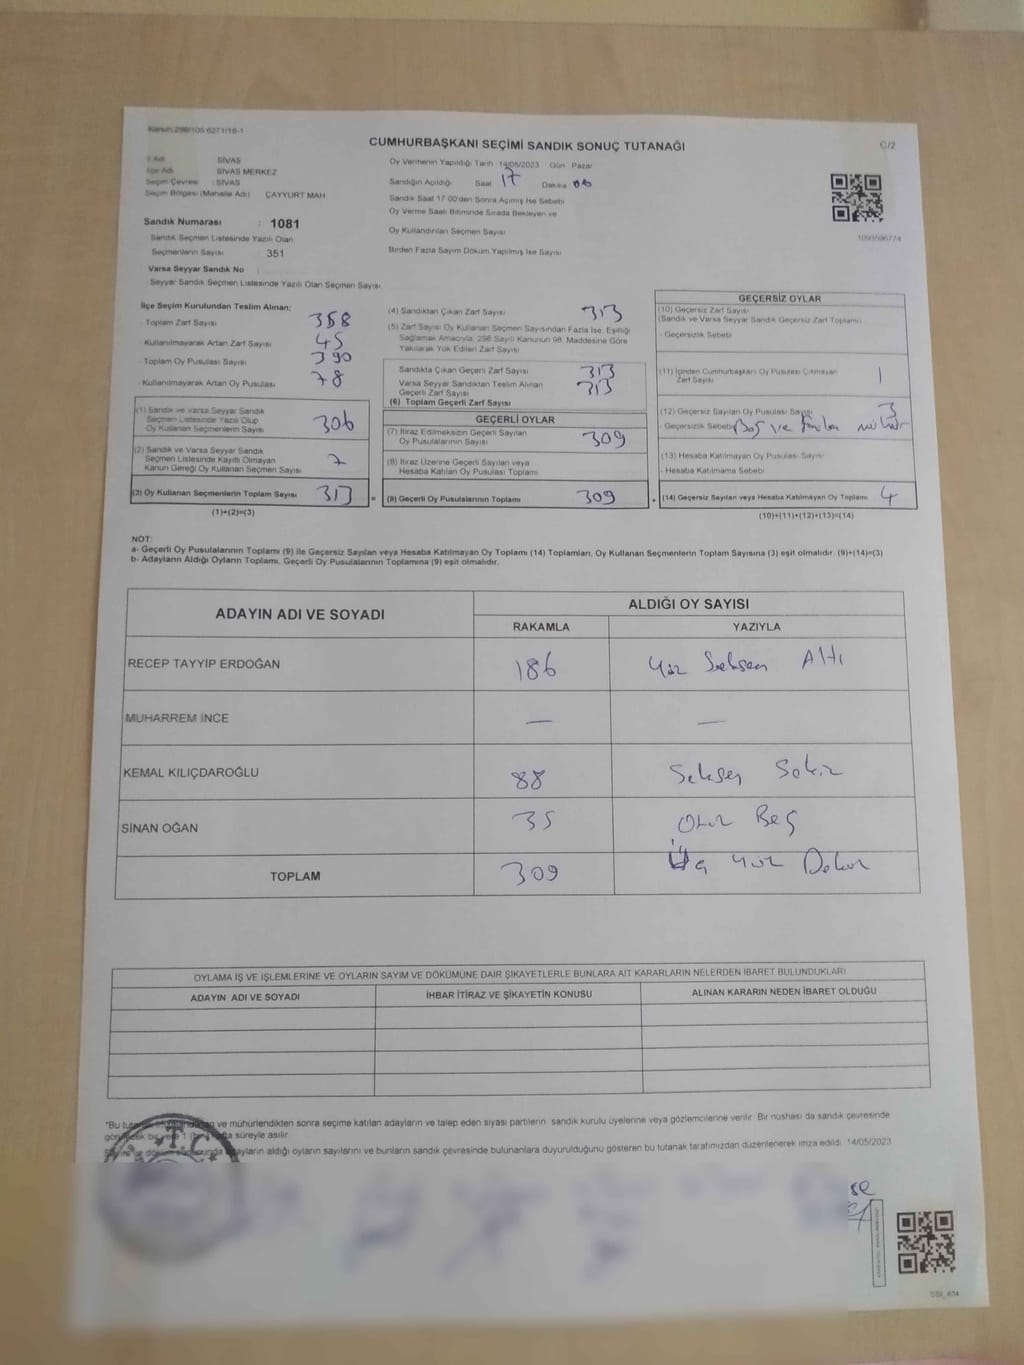 Kanun:298/105 6271/16-1
CUMHURBAŞKANI SEÇİMİ SANDIK SONUÇ TUTANAĞI
C/2
İl Adı : SİVAS
İlçe Adı : SİVAS MERKEZ
Seçim Çevresi : SİVAS
Seçim Bölgesi (Mahalle Adı) : ÇAYYURT MAH
Sandık Numarası : 1081
Sandık Seçmen Listesinde Yazılı Olan
Seçmenlerin Sayısı 351
Varsa Seyyar Sandık No :
Seyyar Sandık Seçmen Listesinde Yazılı Olan Seçmen Sayısı
Oy Vermenin Yapıldığı Tarih : 14/05/2023 Gün : Pazar
Sandığın Açıldığı Saat 17 Dakika 06
Sandık Saat 17:00'den Sonra Açılmış İse Sebebi
Oy Verme Saati Bitiminde Sırada Bekleyen ve
Oy Kullandırılan Seçmen Sayısı
Birden Fazla Sayım Döküm Yapılmış İse Sayısı
İlçe Seçim Kurulundan Teslim Alınan;
Toplam Zarf Sayısı 358
Kullanılmayarak Artan Zarf Sayısı 45
Toplam Oy Pusulası Sayısı 390
Kullanılmayarak Artan Oy Pusulası 78
(1) Sandık ve Varsa Seyyar Sandık
Seçmen Listesinde Yazılı Olup
Oy Kullanan Seçmenlerin Sayısı 306
(2) Sandık ve Varsa Seyyar Sandık
Seçmen Listesinde Kayıtlı Olmayan
Kanun Gereği Oy Kullanan Seçmen Sayısı 7
(3) Oy Kullanan Seçmenlerin Toplam Sayısı 313 =
(1)+(2)=(3)
(4) Sandıktan Çıkan Zarf Sayısı 313
(5) Zarf Sayısı Oy Kullanan Seçmen Sayısından Fazla İse, Eşitliği
Sağlamak Amacıyla, 298 Sayılı Kanunun 98. Maddesine Göre
Yakılarak Yok Edilen Zarf Sayısı
Sandıkta Çıkan Geçerli Zarf Sayısı 313
Varsa Seyyar Sandıktan Teslim Alınan
Geçerli Zarf Sayısı 313
(6) Toplam Geçerli Zarf Sayısı
GEÇERLİ OYLAR
(7) İtiraz Edilmeksizin Geçerli Sayılan
Oy Pusulalarının Sayısı 309
(8) İtiraz Üzerine Geçerli Sayılan veya
Hesaba Katılan Oy Pusulası Toplamı
(9) Geçerli Oy Pusulalarının Toplamı 309 +
GEÇERSİZ OYLAR
(10) Geçersiz Zarf Sayısı
(Sandık ve Varsa Seyyar Sandık Geçersiz Zarf Toplamı)
Geçersizlik Sebebi
(11) İçinden Cumhurbaşkanı Oy Pusulası Çıkmayan
Zarf Sayısı 1
(12) Geçersiz Sayılan Oy Pusulası Sayısı 3
Geçersizlik Sebebi Boş ve Fazla mühür
(13) Hesaba Katılmayan Oy Pusulası Sayısı
Hesaba Katılmama Sebebi
(14) Geçersiz Sayılan veya Hesaba Katılmayan Oy Toplamı 4
(10)+(11)+(12)+(13)=(14)
NOT:
a- Geçerli Oy Pusulalarının Toplamı (9) ile Geçersiz Sayılan veya Hesaba Katılmayan Oy Toplamı (14) Toplamları, Oy Kullanan Seçmenlerin Toplam Sayısına (3) eşit olmalıdır. (9)+(14)=(3)
b- Adayların Aldığı Oyların Toplamı, Geçerli Oy Pusulalarının Toplamına (9) eşit olmalıdır.
ADAYIN ADI VE SOYADI ALDIĞI OY SAYISI
RAKAMLA YAZIYLA
RECEP TAYYİP ERDOĞAN 186 Yüz Seksen Altı
MUHARREM İNCE — —
KEMAL KILIÇDAROĞLU 88 Seksen Sekiz
SİNAN OĞAN 35 Otuz Beş
TOPLAM 309 Üç Yüz Dokuz
OYLAMA İŞ VE İŞLEMLERİNE VE OYLARIN SAYIM VE DÖKÜMÜNE DAİR ŞİKAYETLERLE BUNLARA AİT KARARLARIN NELERDEN İBARET BULUNDUKLARI
ADAYIN ADI VE SOYADI İHBAR İTİRAZ VE ŞİKAYETİN KONUSU ALINAN KARARIN NEDEN İBARET OLDUĞU
ve mühürlendikten sonra seçime katılan adayların ve talep eden siyasi partilerin sandık kurulu üyelerine veya gözlemcilerine verilir. Bir nüshası da sandık çevresinde
süreyle asılır.
adayların aldığı oyların sayılarını ve bunların sandık çevresinde bulunanlara duyurulduğunu gösteren bu tutanak tarafımızdan düzenlenerek imza edildi. 14/05/2023
T.C.